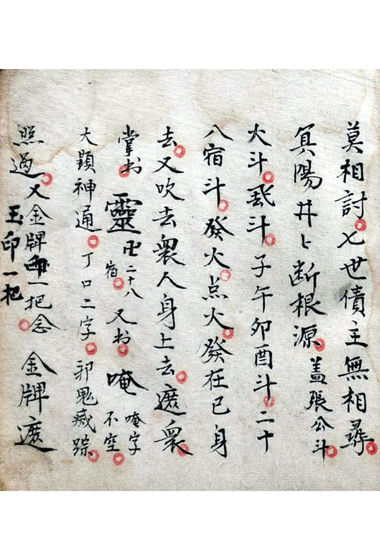 莫相討七世債主無相尋
冥陽井上断根源 盖張公斗
火斗 子午卯酉斗 二十
八宿斗 發火点火發在己身
去又吹去衆人身上去遮衆
掌书靈卍二十八宿 又书唵 唵字不空
大顯神通 丁口二字 邪鬼藏踪
照過又金牌一把念 金牌遮
玉印一把